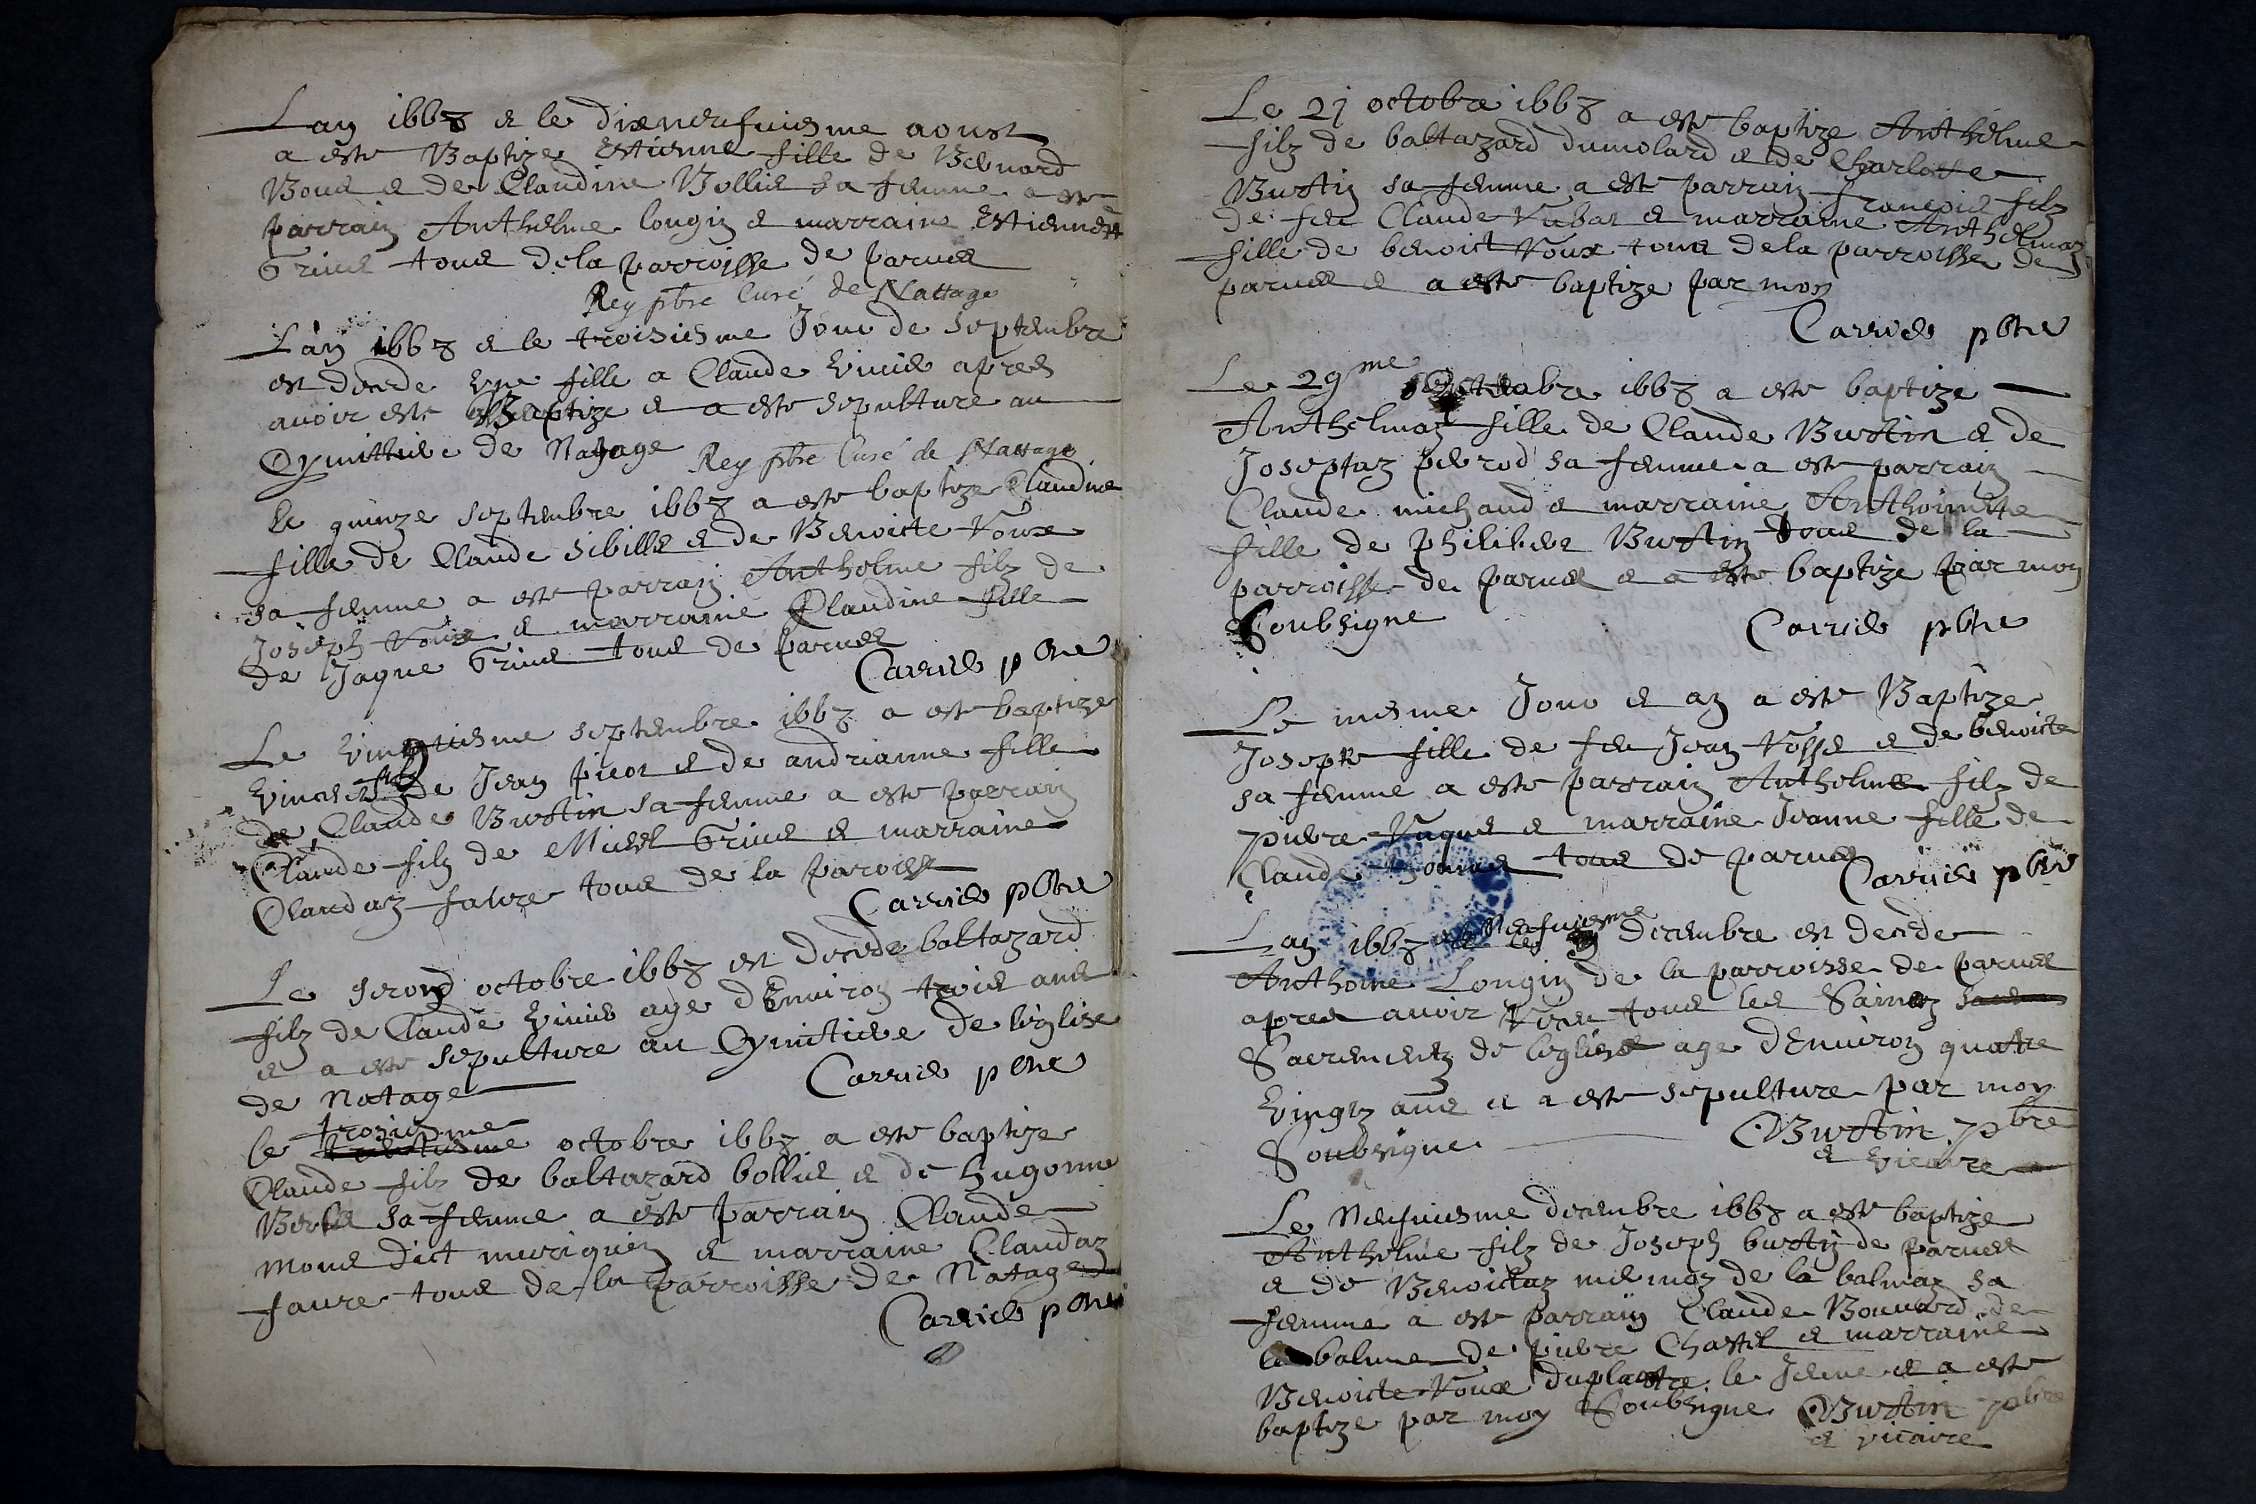 Lan 1663 et le dixneufuiesme aoust
a este Baptize Estienne fille de Bernard
Bous et de Claudine Bollie sa femme a este
parrain Anthelme longin et marraine Estienne
Griue tous dela parroisse de parues
Rey pbre Curé de Nattage
Lan 1663 et le troisiesme Jour de septembre
est decede vne fille a Claude apres
auoir este Baptize et a este sepulture au
Cymittiere de Natage Rey pbre Curé de Nattage
le quinze septembre 1663 a este baptize Claudine
fille de Claude sibille et de Benoicte Roux
sa femme a este parrain Anthelme filz de
Joseph Roux et marraine Claudine fille
de Jaque Griue tous de parues
Carrier pbre
Le septembre 1663 a este baptize
filz de Jean picot et de andrianne fille
de Claude Burtin sa femme a este parrain
Claude filz de Michel Griue et marraine
Claudaz faure tous de la paroisse
Carrier pbre
Le second octobre 1663 est decede baltazard
filz de Claude age dEnuiron trois ans
et a este sepulture au Cymitiere de leglise
de Natage
Carrier pbre
troisiesme
le octobre 1663 a este baptize
Claude filz de baltazard bollie et de hugonne
sa femme a este parrain Claude
mous dict et marraine Claudaz
faure tous de la parroisse de Natage
Carrier pbre
Le 21 octobre 1663 a este baptize Anthelme
filz de baltazard dumolard et de Charlotte
Burtin sa femme a este parrain francois filz
de feu Claude et marraine Anthelmaz
fille de benoict Roux tous dela parroisse de
parues et a este baptize par moy
Carrier pbre
Le 29me octobre 1663 a este baptize
Anthelmaz fille de Claude Burtin et de
Joseptaz perrod sa femme a este parrain
Claude michaud et marraine Anthoinette
fille de philibert Burtin tous de la
parroisse de parues et a este baptize par moy
Soubsigne
Carrier pbre
Le mesme Jour et an a este Baptize
Josepte fille de feu Jean Rosse et de benoicte
sa femme a este parrain Anthelme filz de
pierre et marraine Jeanne fille de
Claude tous de parues
Carrier pbre
Lan 1663 et le neufuiesme decembre est decede
Anthoine Longin de la parroisse de parues
apres auoir receu tous les Sainctz
Sacrementz de leglise age dEnuiron quatre
vingtz ans et a este sepulture par moy
Soubsigne
Burtin pbre
et vicaire
Le Neufuiesme decembre 1663 a este baptize
Anthelme filz de Joseph burtin de parues
et de Benoictaz de la balmaz sa
femme a este parrain Claude Bouuard de
la balme de pierre Chastel et marraine
Benoicte Roux duplastre le Jeune et a este
baptize par moy Soubsigne Burtin pbre
et vicaire